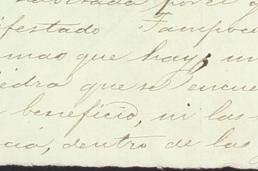 por el
ifestado Tampoco
mas que hay, un
iedra que se encue
beneficio, ni las
cia, dentro de las